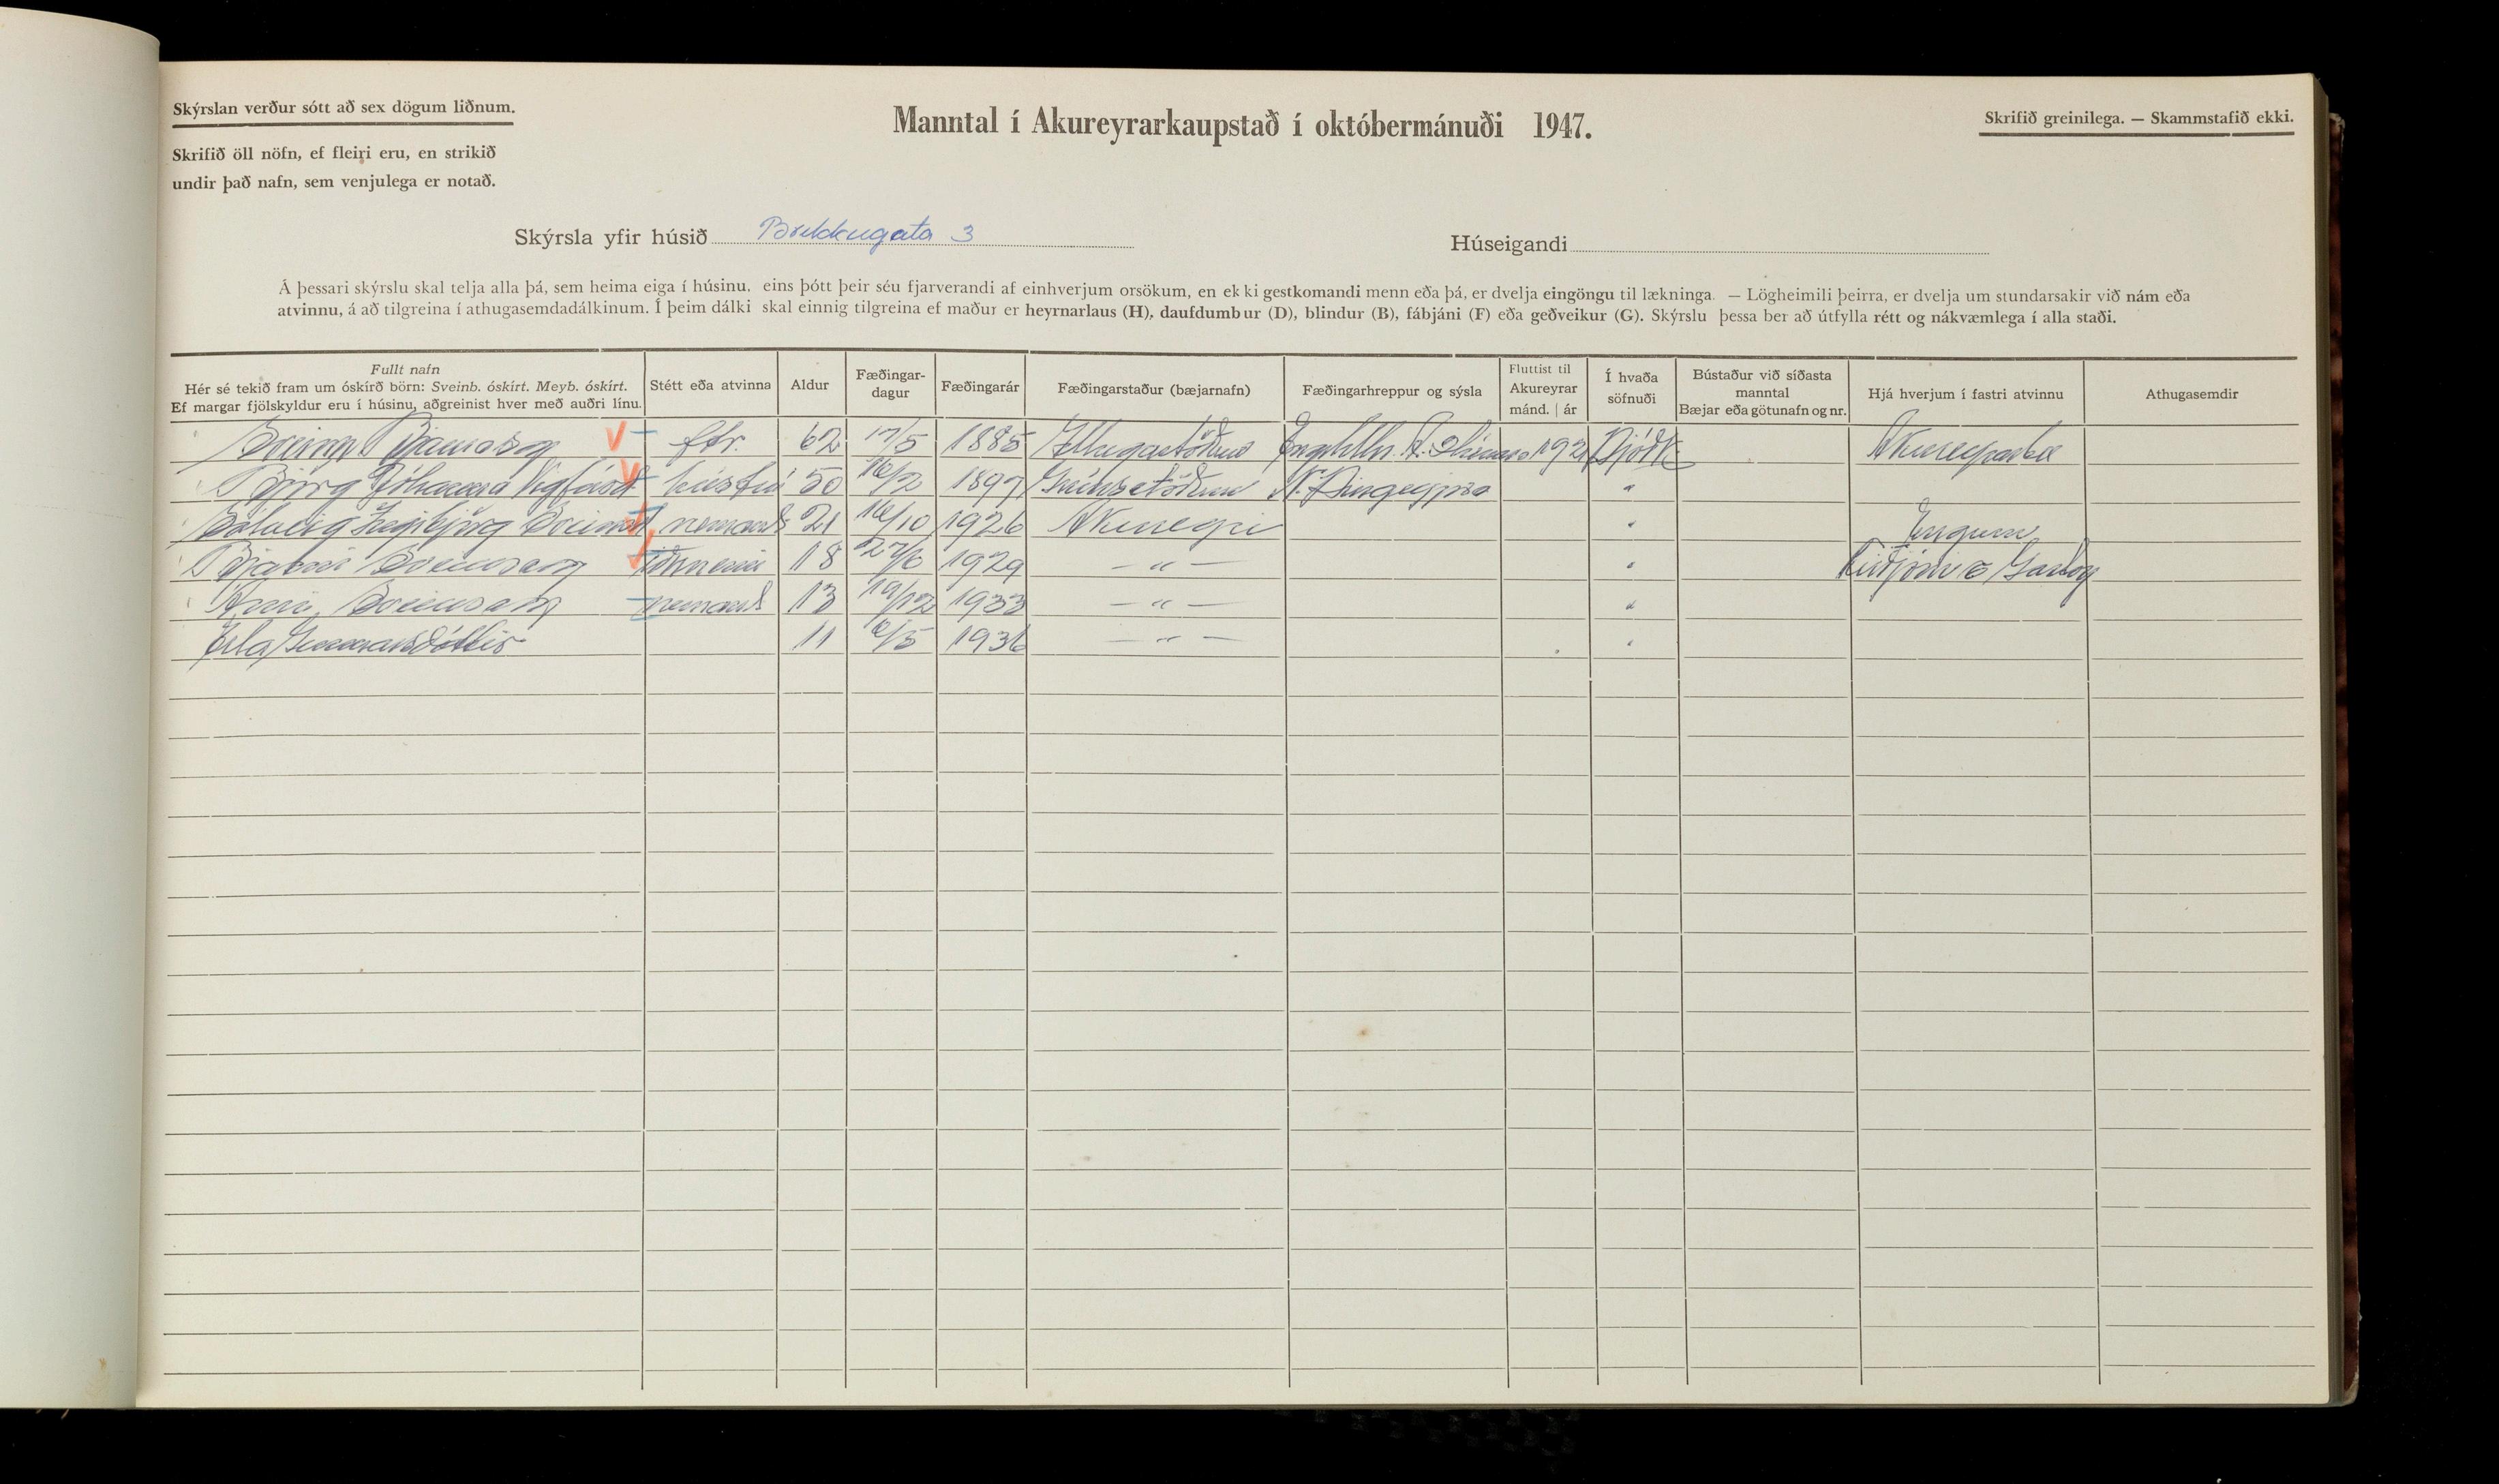 Skýrslan verður sótt að sex dögum liðnum.
Manntal í Akureyrarkaupstað í októbermánuði 1947.
Skrifið greinilega. — Skammstafið ekki.
Skrifið öll nöfn, ef fleiri eru, en strikið
undir það nafn, sem venjulega er notað.
Skýrsla yfir húsið Brekkugata 3
Húseigandi
Á þessari skýrslu skal telja alla þá, sem heima eiga í húsinu, eins þótt þeir séu fjarverandi af einhverjum orsökum, en ekki gestkomandi menn eða þá, er dvelja eingöngu til lækninga. — Lögheimili þeirra, er dvelja um stundarsakir við nám eða
atvinnu, á að tilgreina í athugasemdadálkinum. Í þeim dálki skal einnig tilgreina ef maður er heyrnarlaus (H), daufdumbur (D), blindur (B), fábjáni (F) eða geðveikur (G). Skýrslu þessa ber að útfylla rétt og nákvæmlega í alla staði.
Fullt nafn
Hér sé tekið fram um óskírð börn: Sveinb. óskírt. Meyb. óskírt.
Ef margar fjölskyldur eru í húsinu, aðgreinist hver með auðri línu.
Stétt eða atvinna
Aldur
Fæðingar-
dagur
Fæðingarár
Fæðingarstaður (bæjarnafn)
Fæðingarhreppur og sýsla
Fluttist til
Akureyrar
mánd. | ár
Í hvaða
söfnuði
Bústaður við síðasta
manntal
Bæjar eða götunafn og nr.
Hjá hverjum í fastri atvinnu
Athugasemdir
Sveinn Bjarnason ftr. 62 17/5 1885 Illugastöðum 192 Þjóðk. Akureyrarbæ
Björg Jóhanna Vigfúsd húsfrú 50 16/2 1897 N. Þingeyjars "
Sólveig Ingibjörg Sveinsd nemandi 21 16/10 1926 Akureyri " Engum
Bjarni Sveinsson iðnnemi 18 27/6 1929 — " — "
Árni Sveinsson nemand 13 19/12 1933 — " — "
Erla Gunnarsdóttir 11 6/5 1936 — " — "